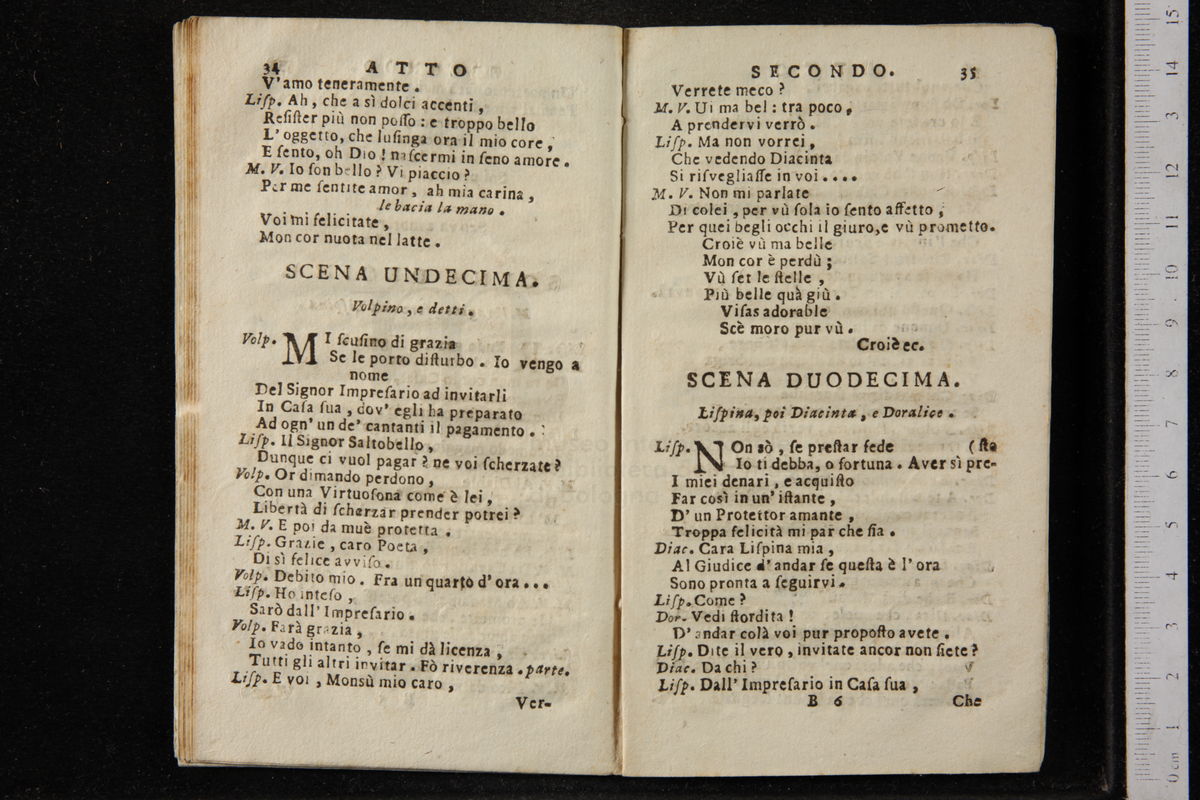 34 ATTO
V'amo teneramente.
Liſp. Ah, che a sì dolci accenti,
Reſiſter più non poſſo: e troppo bello
L'oggetto, che luſinga ora il mio core,
E ſento, oh Dio! naſcermi in ſeno amore.
M. V. Io ſon bello? Vi piaccio?
Per me ſentite amor, ah mia carina,
le bacia la mano.
Voi mi felicitate,
Mon cor nuota nel latte.
SCENA UNDECIMA.
Volpino, e detti.
Volp. MI ſcuſino di grazia
Se le porto diſturbo. Io vengo a
nome
Del Signor Impreſario ad invitarli
In Caſa ſua, dov' egli ha preparato
Ad ogn' un de' cantanti il pagamento.
Liſp. Il Signor Saltobello,
Dunque ci vuol pagar? ne voi ſcherzate?
Volp. Or dimando perdono,
Con una Virtuoſona come è lei,
Libertà di ſcherzar prender potrei?
M. V. E poi da muè protetta.
Liſp. Grazie, caro Poeta,
Di sì felice avviſo.
Volp. Debito mio. Fra un quarto d'ora...
Liſp. Ho inteſo,
Sarò dall' Impreſario.
Volp. Farà grazia,
Io vado intanto, ſe mi dà licenza,
Tutti gli altri invitar. Fò riverenza. parte.
Liſp. E voi, Monsù mio caro,
Ver-
SECONDO. 35
Verrete meco?
M. V. Ui ma bel: tra poco,
A prendervi verrò.
Liſp. Ma non vorrei,
Che vedendo Diacinta
Si riſvegliaſſe in voi....
M. V. Non mi parlate
Di colei, per vù ſola io ſento affetto,
Per quei begli occhi il giuro, e vù prometto.
Croiè vù ma belle
Mon cor è perdù;
Vù ſet le ſtelle,
Più belle quà giù.
Viſas adorable
Scè moro pur vù.
Croiè ec.
SCENA DUODECIMA.
Liſpina, poi Diacinta, e Doralice.
Liſp. NOn sò, ſe preſtar fede (ſto
Io ti debba, o fortuna. Aver sì pre-
I miei denari, e acquiſto
Far così in un' iſtante,
D' un Protettor amante,
Troppa felicità mi par che ſia.
Diac. Cara Liſpina mia,
Al Giudice d'andar ſe queſta è l'ora
Sono pronta a ſeguirvi.
Liſp. Come?
Dor. Vedi ſtordita!
D'andar colà voi pur propoſto avete.
Liſp. Dite il vero, invitate ancor non ſiete?
Diac. Da chi?
Liſp. Dall' Impreſario in Caſa ſua,
B 6 Che